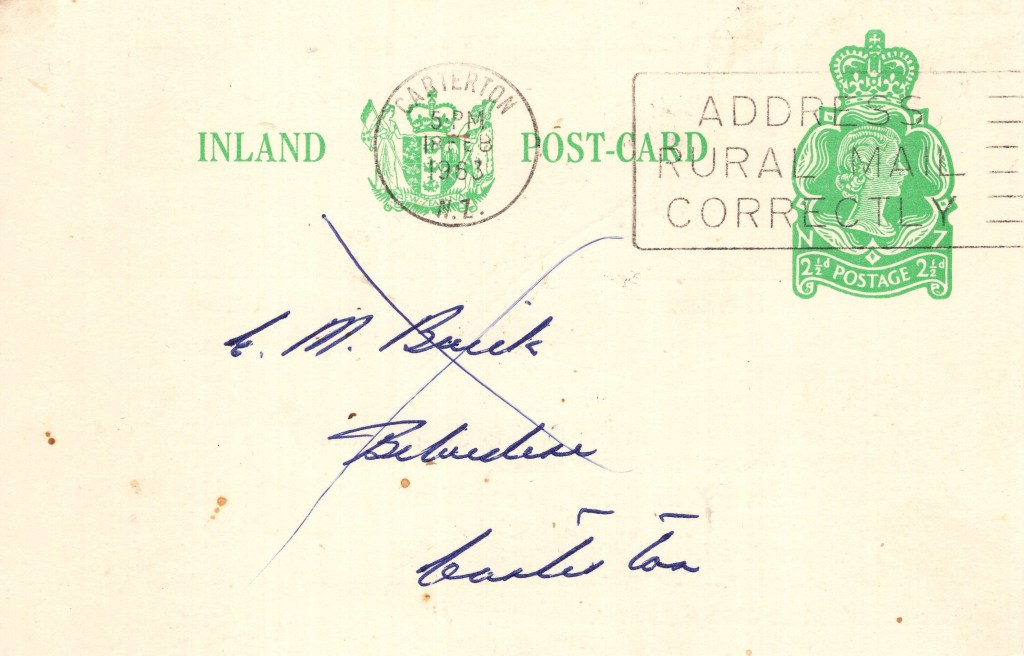 INLAND POST-CARD
CARTERTON
5 PM
18 FEB
1963
N.Z.
NEW ZEALAND
ADDRESS
RURAL MAIL
CORRECTLY
N Z
2½d POSTAGE 2½d
M.
Belvedere
Carterton